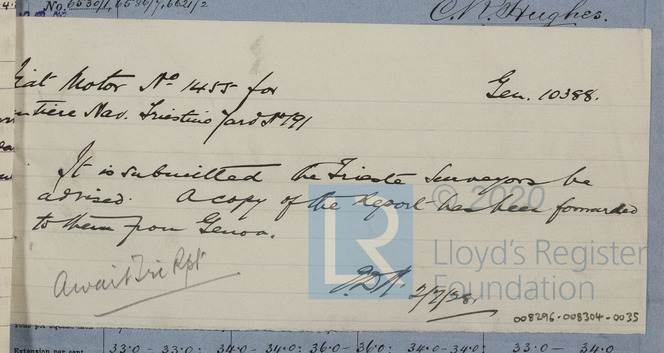 No. 6530/1, 6536/7, 6621/2
C.P. Hughes.
Fiat Motor No 1455 for
Gen. 10388.
tiere Nav. Triestino Yard No 191
It is submitted the Trieste Surveyors be
advised. A copy of the Report has been forwarded
to them from Genoa.
Await Tri Rpt
2/7/28.
LR
© 2020
Lloyd's Register
Foundation
008296-008304-0035
Extension per cent.
33.0 - 33.0: 34.0 - 34.0: 36.0 - 36.0: 34.0-34.0: 33.0 - 34.0